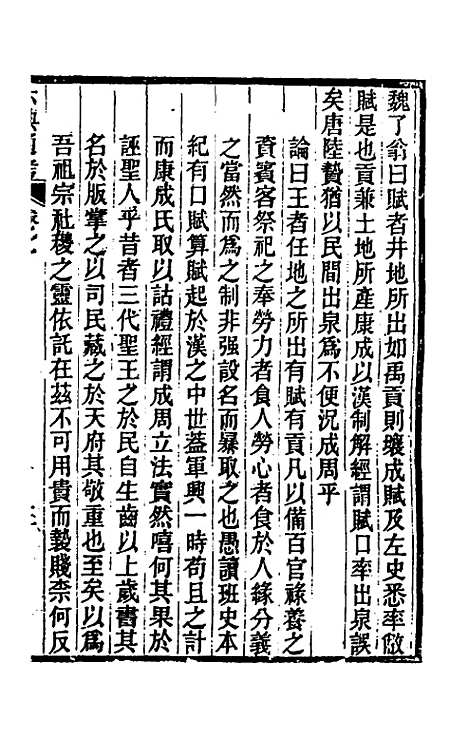 魏了翁曰賦者井地所出如禹貢則壤成賦及左史悉率敝
賦是也貢兼土地所產康成以漢制解經謂賦口率出泉誤
矣唐陸贄猶以民間出泉為不便況成周乎
論曰王者任地之所出有賦有貢凡以備百官祿養之
資賓客祭祀之奉勞力者食人勞心者食於人緣分義
之當然而為之制非强設名而暴取之也愚讀班史本
紀有口賦算賦起於漢之中世蓋軍興一時苟且之計
而康成氏取以詁禮經謂成周立法實然嘻何其果於
誣聖人乎昔者三代聖王之於民自生齒以上歲書其
名於版掌之以司民藏之於天府其敬重也至矣以為
吾祖宗社稷之靈依託在茲不可用貴而褻賤柰何反